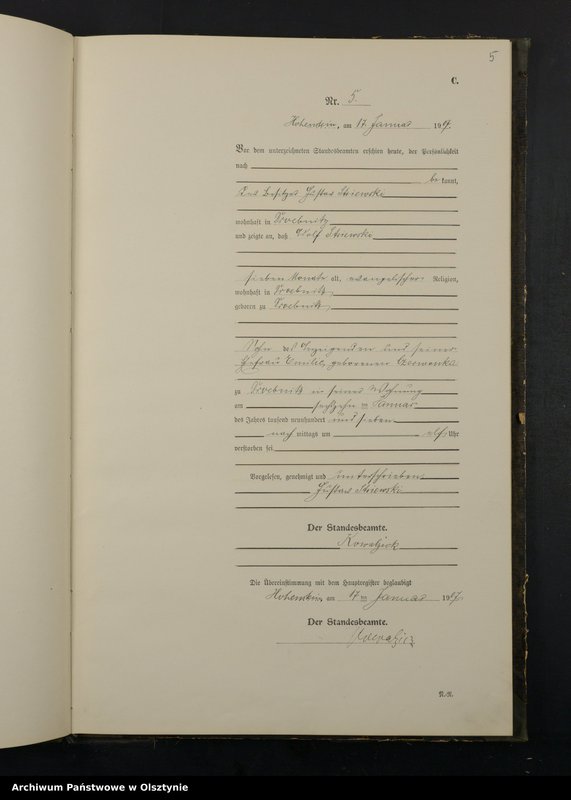 5
C.
Nr. 5.
Hohenstein, am 17. Januar 1907.
Vor dem unterzeichneten Standesbeamten erschien heute, der Persönlichkeit
nach
be kannt,
der Besitzer Gustav
wohnhaft in
und zeigte an, daß
sieben Monate alt, evangelischer Religion,
wohnhaft in
geboren zu
Sohn des Anzeigenden und seiner
Ehefrau Emilie, geborenen
zu in seiner Wohnung
am sechzehn ten Januar
des Jahres tausend neunhundert und sieben
nach mittags um elf Uhr
verstorben sei
Vorgelesen, genehmigt und unterschrieben
Gustav
Der Standesbeamte.
Kowalzick
Die Übereinstimmung mit dem Hauptregister beglaubigt
Hohenstein, am 17 ten Januar 1907.
Der Standesbeamte.
Kowalzick
Archiwum Państwowe w Olsztynie